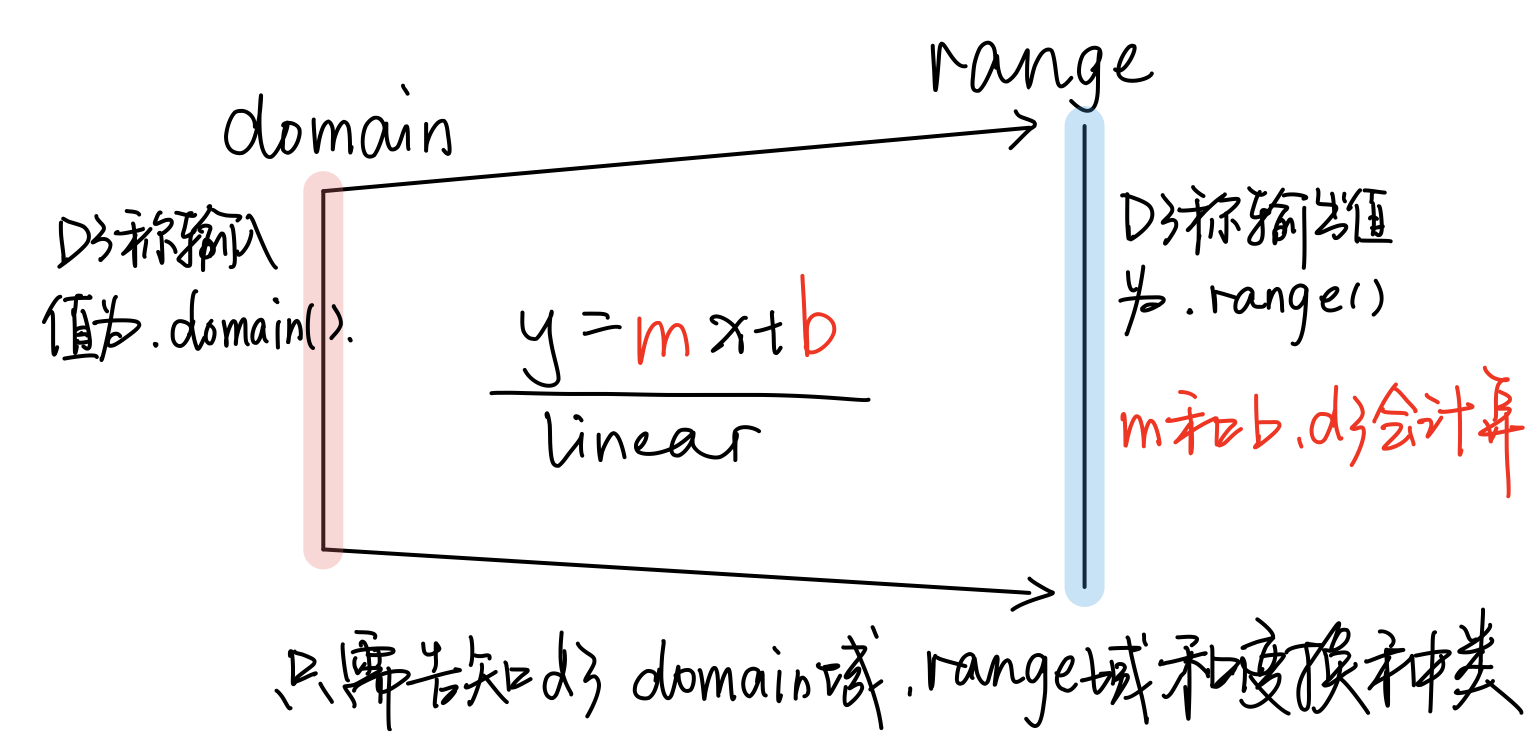 domain
range
D3称输入
值为.domain().
y=mx+b
linear
D3称输出值
为.range()
m和b,d3会计算
只需告知d3 domain域,range域和变换种类